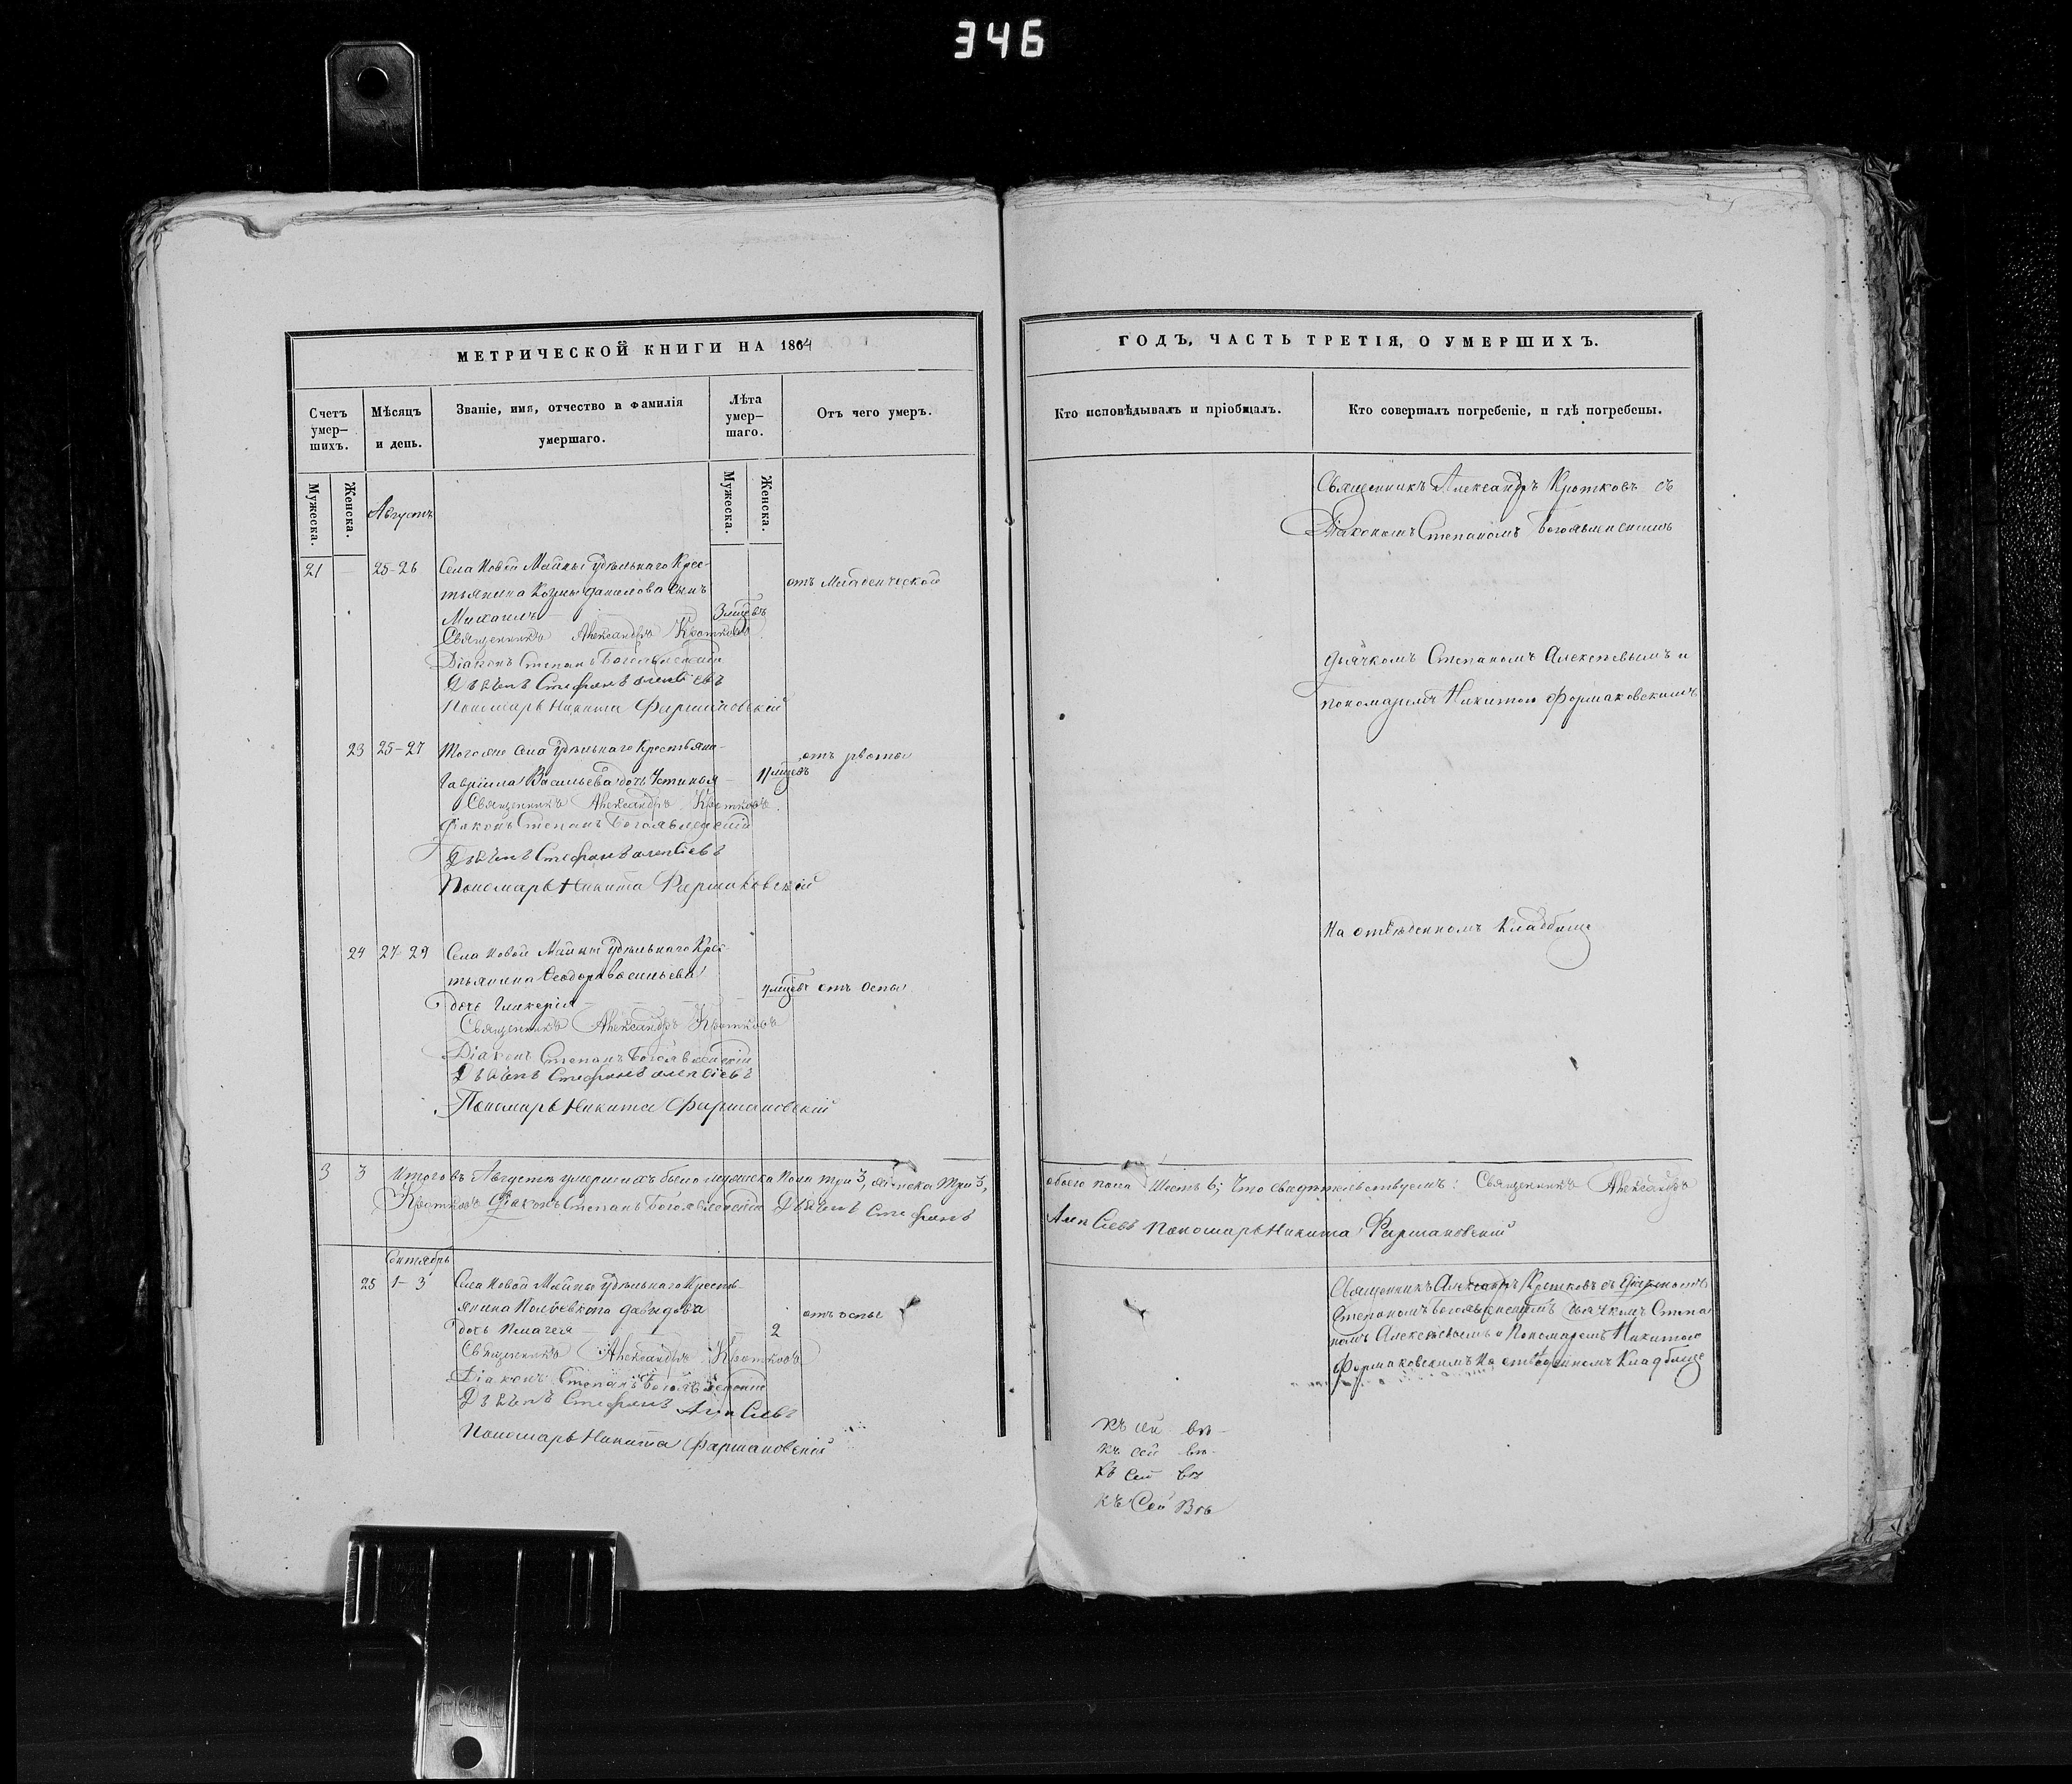 346
МЕТРИЧЕСКОЙ КНИГИ НА 1864
Счетъ умер–шихъ.
Мѣсяцъ и день.
Званіе, имя, отчество и фамилія умершаго.
Лѣта умер–шаго.
Отъ чего умеръ.
Мужеска.
Женска.
Мужеска.
Женска.
Августъ
21 — 25-26 Села Новой Майны Удѣльнаго Крес-
тьянина Козмы Данилова сынъ
отъ Младенческой
Михаилъ — 3 мѣсцвъ
Священникъ Александръ Кротковъ
Діаконъ Степанъ Богоявленскій
Дьячекъ Стефанъ Алексіевъ
Пономарь Никита Фармаковскій
23 25-27 Тогоже села Удѣльнаго Крестьяни-
отъ рвоты
Гавріила Васильева дочь Устинья — 11 мѣсцвъ
Священникъ Александръ Кротковъ
Діаконъ Степанъ Богоявленскій
Дьячекъ Стефанъ Алексіевъ
Пономарь Никита Фармаковскій
24 27-29 Села Новой Майны Удѣльнаго Крес-
тьянина Ѳеодора Васильева
мѣсцвъ отъ Оспы
дочь Гликерія
Священникъ Александръ Кротковъ
Діаконъ Степанъ Богоявленскій
Дьячекъ Стефанъ Алексіевъ
Пономарь Никита Фармаковскій
3 3 Итого въ Августѣ умершихъ было мужеска Пола три 3, женска Три 3,
Кротковъ Діаконъ Степанъ Богоявленскій Дьячекъ Стефанъ
Сентябрь
25 1-3 Села Новой Майны Удѣльнаго Кресть-
янина Давыдова
отъ оспы
дочь Пелагея — 2
Священникъ Александръ Кротковъ
Діаконъ Степанъ Богоявленскій
Дьячекъ Стефанъ Алексіевъ
Пономарь Никита Фармаковскій
ГОДЪ, ЧАСТЬ ТРЕТІЯ, О УМЕРШИХЪ.
Кто исповѣдывалъ и пріобщалъ.
Кто совершалъ погребеніе, и гдѣ погребены.
Священникъ Александръ Кротковъ съ
Діакономъ Степаномъ Богоявленскимъ
дьячкомъ Степаномъ Алексѣевымъ и
пономаремъ Никитою Формаковскимъ
На отведенномъ Кладбище
обоего пола Шесть 6; Что свидѣтельствуемъ: Священникъ Александръ
Алексіевъ Пономарь Никита Фармаковскій
Священникъ Александръ Кротковъ съ Діакономъ
Степаномъ Богоявленскимъ дьячкомъ Степа
номъ Алексѣевымъ и Пономаремъ Никитою
Формаковскимъ На отведенномъ Кладбище
Къ сей вѣ-
Къ сей вѣ-
Къ Сей вѣ
Къ Сей Вѣ